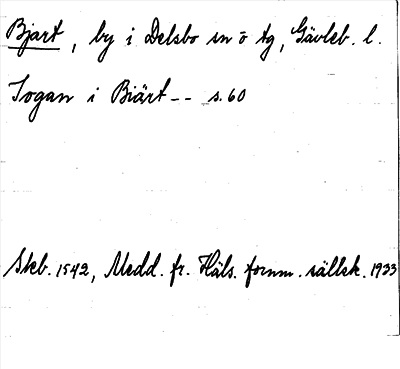 Bjart, by i Delsbo sn o tg, Gävleb. l.
Jogan i Biärt -- s. 60
Skb. 1542, Medd. fr. Häls. fornm. sällsk. 1933